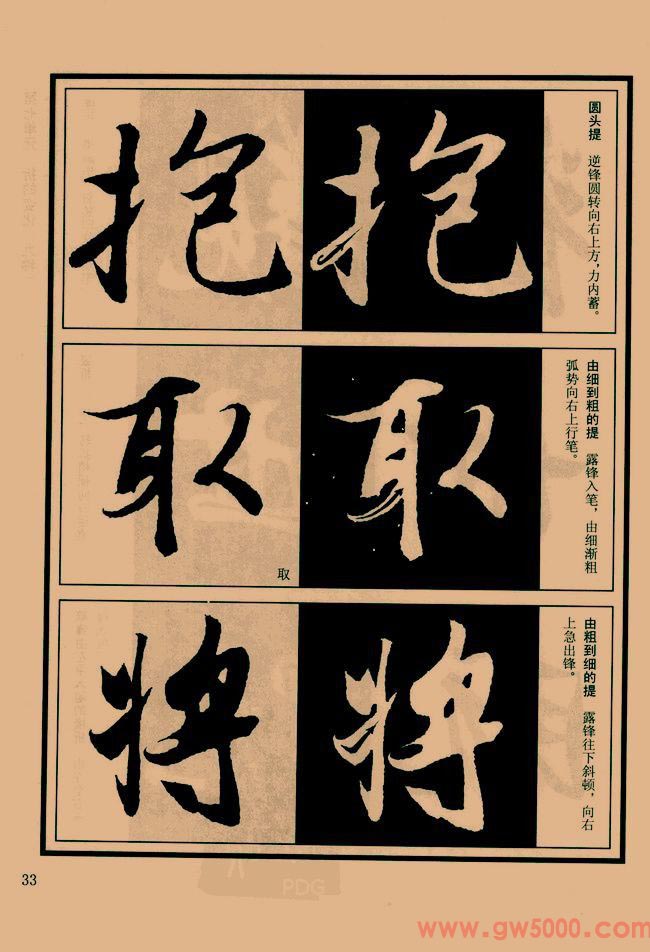 抱 抱
圆头提 逆锋圆转向右上方,力内蓄。
取 取
取
由细到粗的提 露锋入笔,由细渐粗
弧势向右上行笔。
将 将
由粗到细的提 露锋往下斜顿,向右
上急出锋。
33
PDG
www.gw5000.com